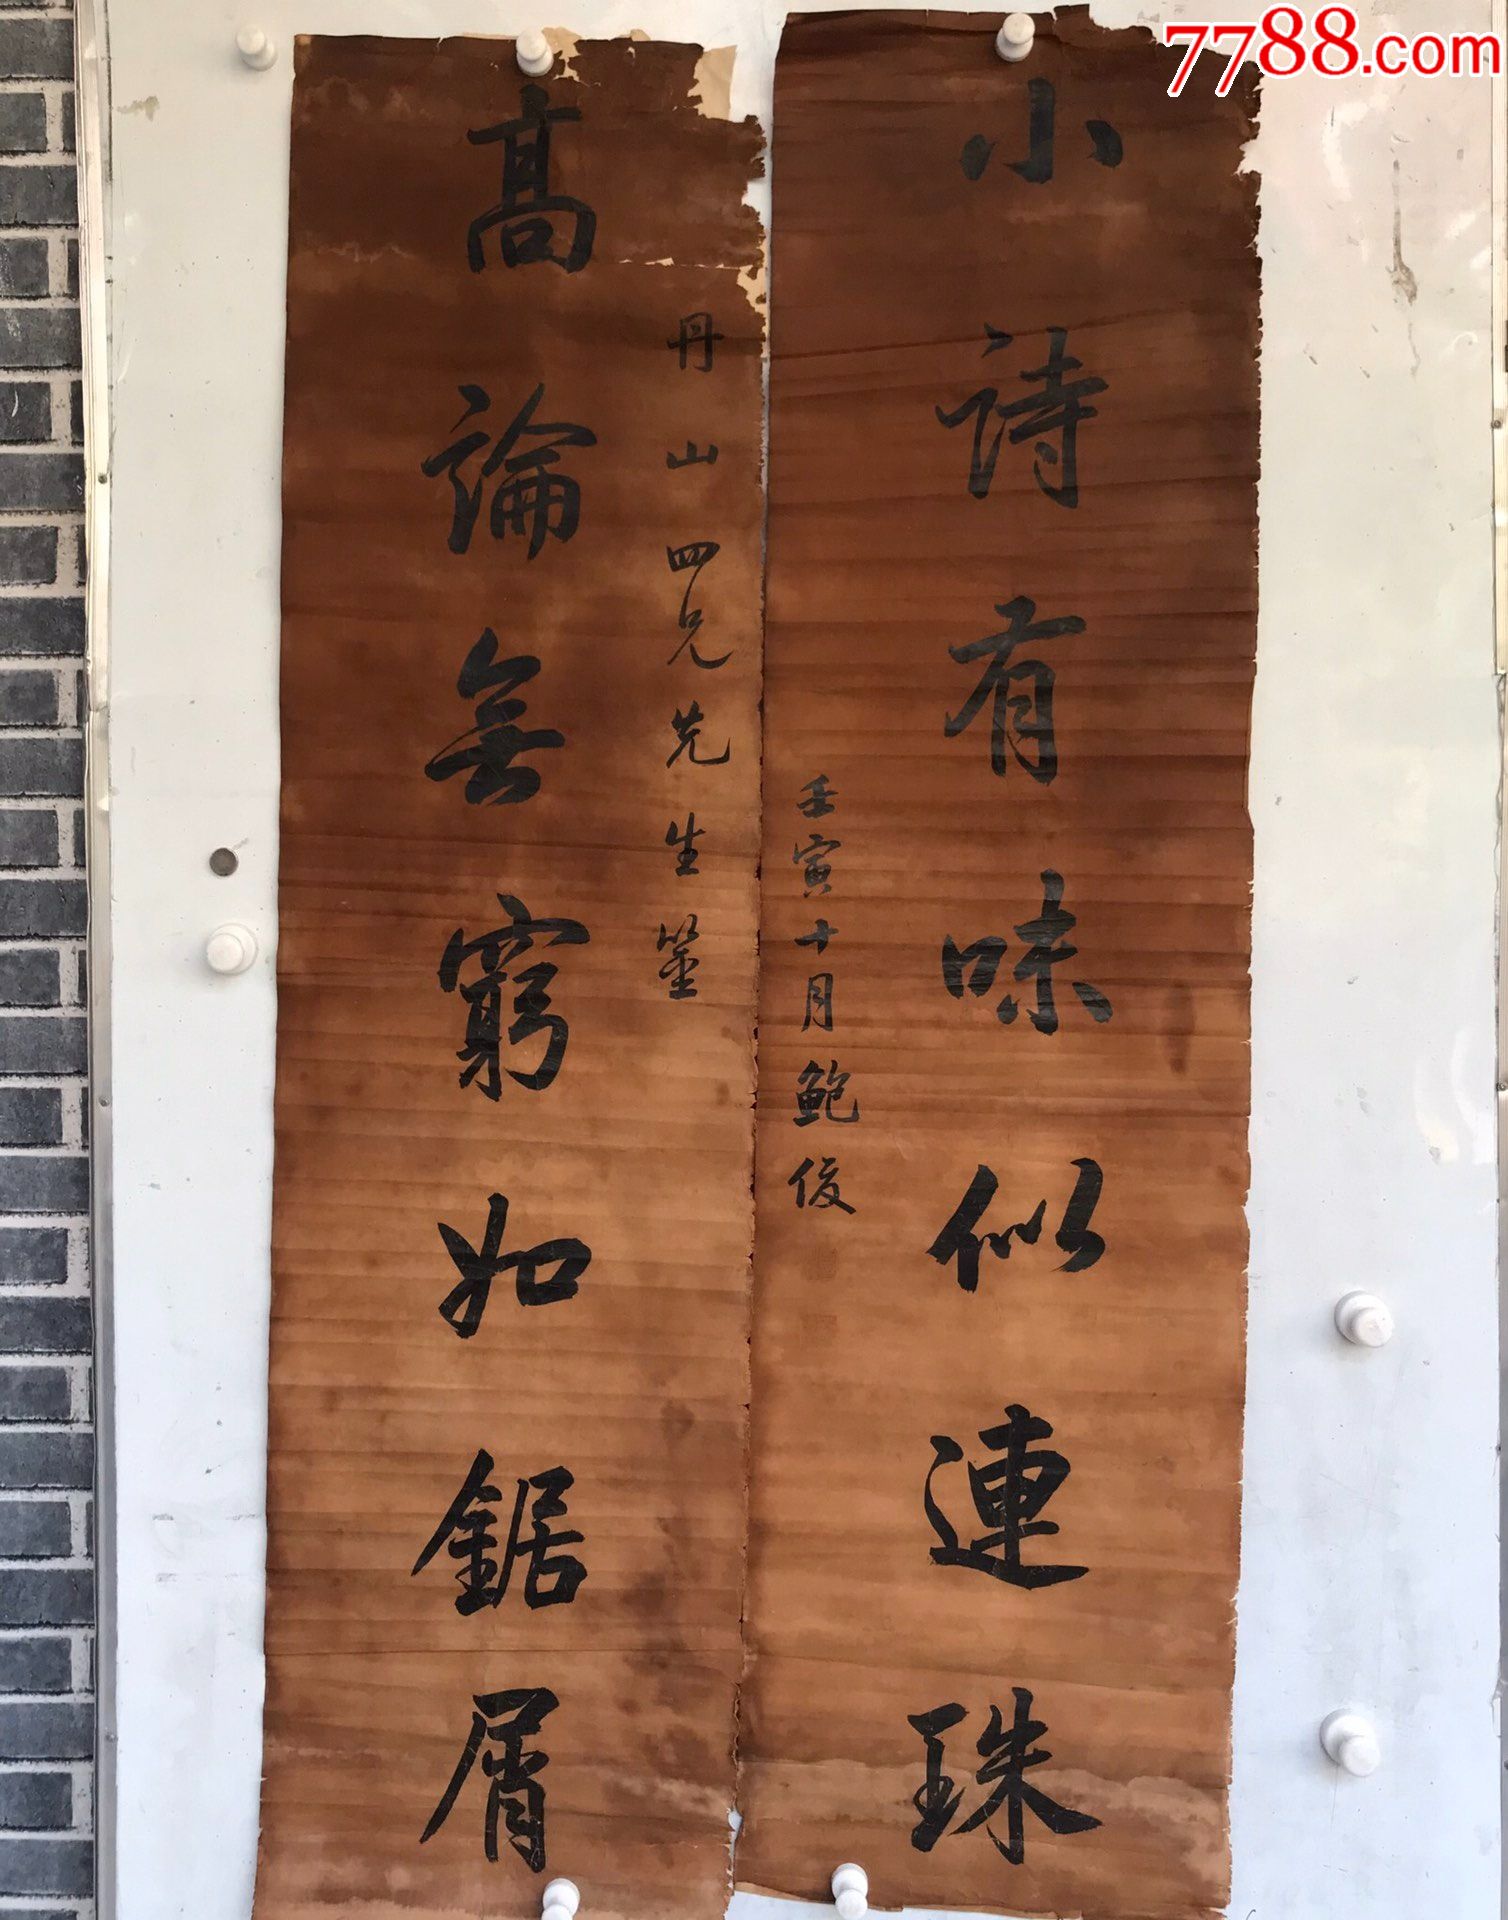 7788.com
小詩有味似連珠
壬寅十月鮑俊
丹山四兄先生
髙論無窮如鋸屑